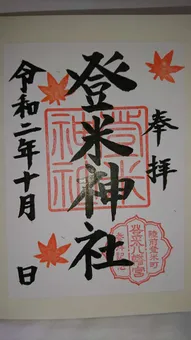 奉拝
登米神社
令和二年十月 日
登米八幡宮